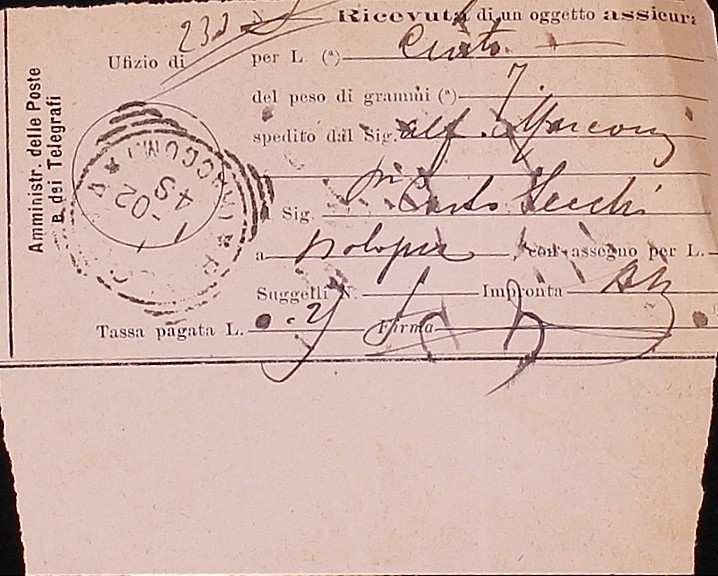 Ricevuta di un oggetto assicura
Ufizio di 232
per L. (a) Cento
del peso di grammi (a) 7
spedito dal Sig. Alf. Marconi
Sig. Carlo Secchi
a Bologna, con assegno per L.
Suggelli N. Impronta
Tassa pagata L. Firma
Amministr. delle Poste
e dei Telegrafi
(RACCOM.)
-02